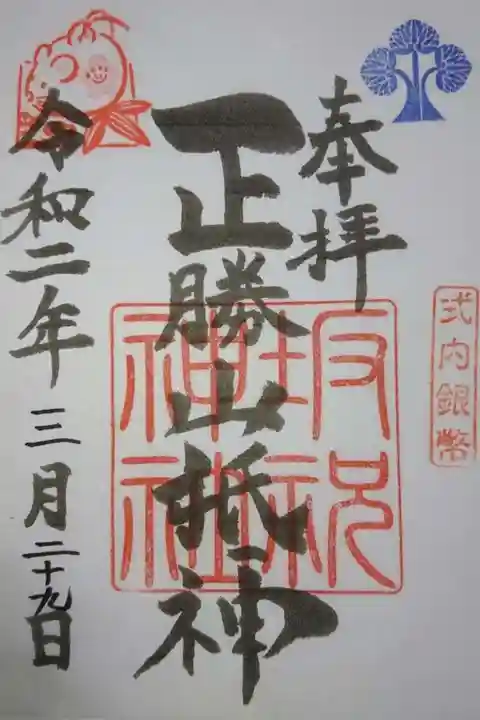 式内銀幣
奉拝
正勝山抵神
坂祝
神社
令和二年三月二十九日